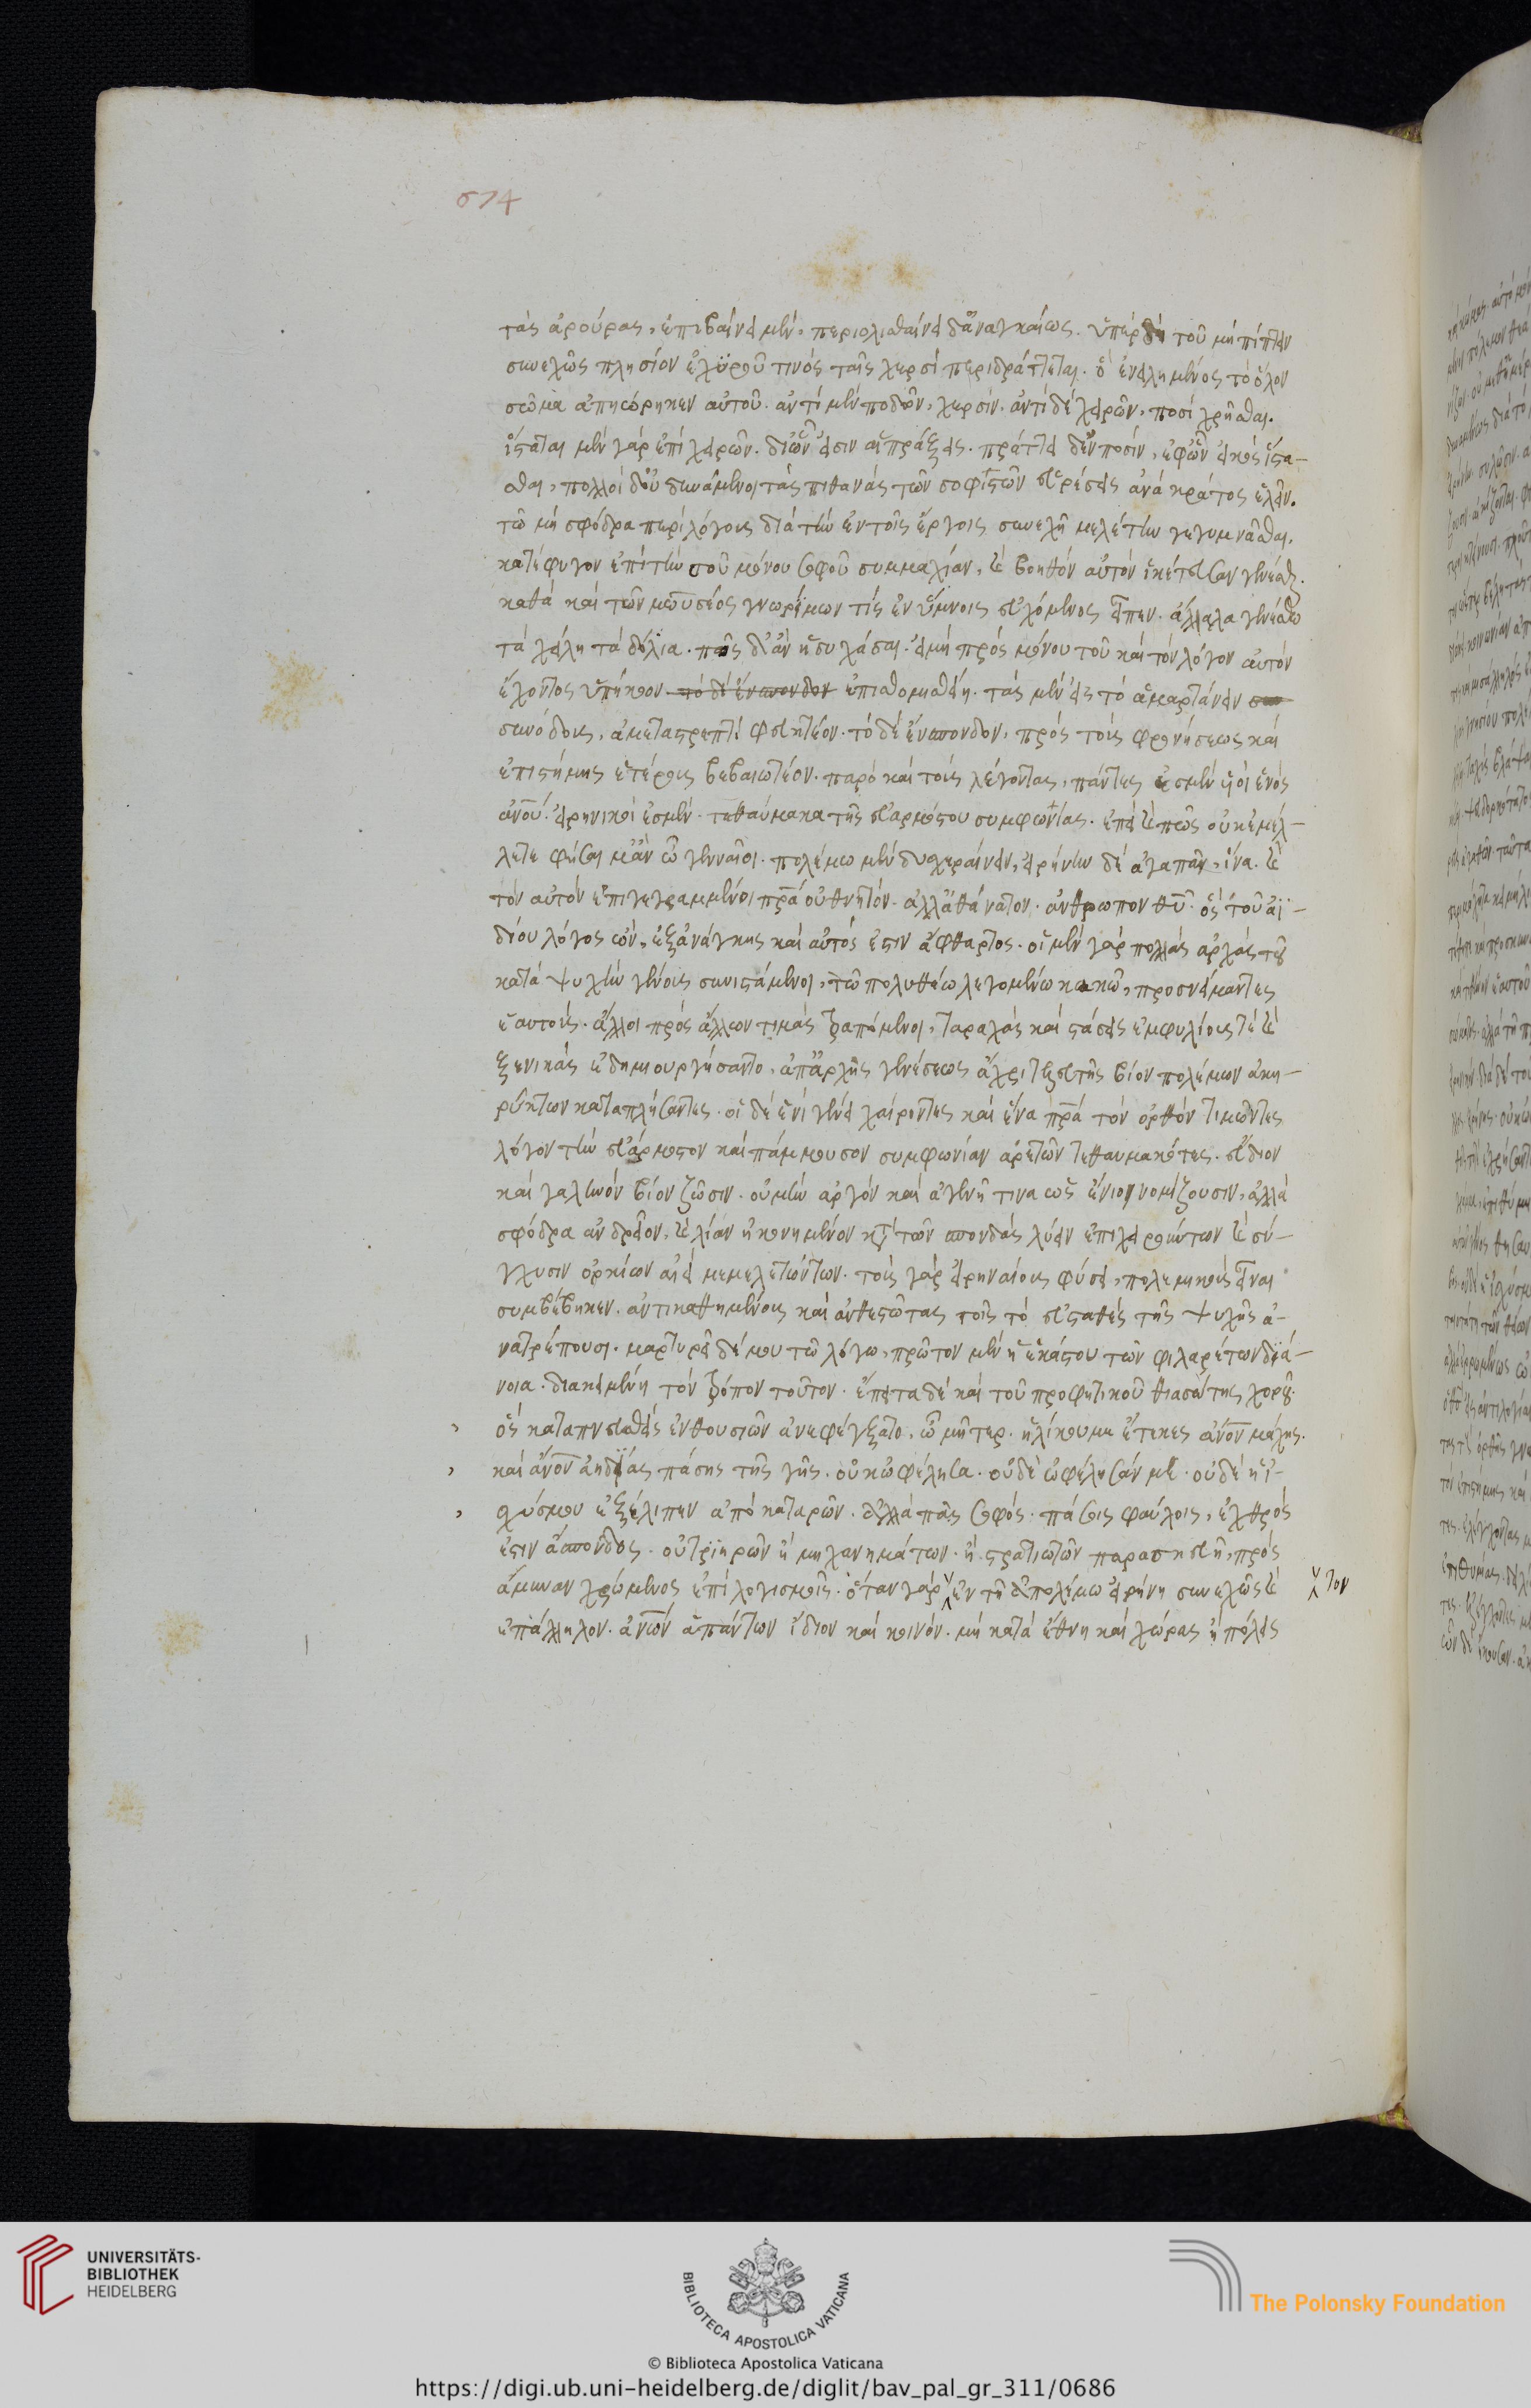 674
τὰς ἀρούρας, ἐπιβαίνει μὲν, περιολισθαίνει δ' ἀναγκαίως. ὑπὲρ δὴ τοῦ μὴ πίπτειν
συνεχῶς πλησίον ἐχυροῦ τινὸς ταῖς χερσὶ περιδράττεται. ᾧ ἐνειλημμένος τὸ ὅλον
σῶμα ἀπῃώρηκεν αὐτοῦ. ἀντὶ μὲν ποδῶν, χερσὶν. ἀντὶ δὲ χειρῶν, ποσὶ χρῆσθαι.
ἵσταται μὲν γὰρ ἐπὶ χειρῶν. δι' ὧν εἰσιν αἱ πράξεις. πράττει δ' ἐν ποσὶν, ἐφ' ὧν εἰκὸς ἵστα-
σθαι, πολλοὶ δ' οὐ δυνάμενοι τὰς πιθανὰς τῶν σοφιστῶν εὑρέσεις ἀνὰ κράτος ἑλεῖν.
τῷ μὴ σφόδρα περὶ λόγους διὰ τὴν ἐν τοῖς ἔργοις συνεχῆ μελέτην γεγυμνᾶσθαι.
κατέφυγον ἐπὶ τὴν τοῦ μόνου σοφοῦ συμμαχίαν, καὶ βοηθὸν αὐτὸν ἱκέτευσαν γενέσθαι.
καθὰ καὶ τῶν μωϋσέος γνωρίμων τίς ἐν ὕμνοις εὐχόμενος εἶπεν. ἄλαλα γενέσθω
τὰ χείλη τὰ δόλια. πῶς δ' ἂν ἡσυχάσαι. εἰ μὴ πρὸς μόνου τοῦ καὶ τὸν λόγον αὐτὸν
ἔχοντος ὑπήκοον τὸ δὲ ἔνσπονδον ἐπιστομισθείη. τὰς μὲν εἰς τὸ ἁμαρτάνειν συν
συνόδους, ἀμεταστρεπτὶ φευκτέον. τὸ δὲ ἔνσπονδον, πρὸς τοὺς φρονήσεως καὶ
ἐπιστήμης ἑταίρους βεβαιωτέον. παρὸ καὶ τοὺς λέγοντας, πάντες ἐσμὲν υἱοὶ ἑνὸς
ἀνου. εἰρηνικοὶ ἐσμὲν. τεθαύμακα τῆς εὐαρμόστου συμφωνίας. ἐπεὶ καὶ πῶς οὐκ ἐμέλ-
λετε φήσαι μ' ἂν ὦ γενναῖοι. πολέμω μὲν δυσχεραίνειν, εἰρήνην δὲ ἀγαπᾶν, ἕνα. καὶ
τὸν αὐτὸν ἐπιγεγραμμένοι πρα οὐ θνητὸν. ἀλλ' ἀθάνατον. ἄνθρωπον θυ. ὃς τοῦ ἀϊ-
δίου λόγος ὢν, ἐξ ἀνάγκης καὶ αὐτός ἐστιν ἄφθαρτος. οἱ μὲν γὰρ πολλὰς ἀρχὰς τοῦ
κατὰ ψυχὴν γένους συνιστάμενοι, τῷ πολυθέω λεγομένω κακῷ, προσνείμαντες
ἑαυτοὺς. ἄλλοι πρὸς ἄλλων τιμὰς τραπόμενοι, ταραχὰς καὶ στάσεις ἐμφυλίους τὲ καὶ
ξενικὰς ἐδημιουργήσαντο. ἀπ' ἀρχῆς γενέσεως ἄχρι τελευτῆς βίον πολέμων ἀκη-
ρύκτων καταπλήσαντες. οἱ δὲ ἑνὶ γένει χαίροντες καὶ ἕνα πρα τὸν ὀρθὸν τιμῶντες
λόγον τὴν εὐάρμοστον καὶ πάμμουσον συμφωνίαν ἀρετῶν τεθαυμακότες. εὔδιον
καὶ γαληνὸν βίον ζῶσιν. οὐ μὴν ἀργὸν καὶ ἀγενῆ τινα ὡς ἔνιοι νομίζουσιν, ἀλλὰ
σφόδρα ἀνδρεῖον, καὶ λίαν ἠκονημένον κατὰ τῶν σπονδὰς λύειν ἐπιχειρούντων καὶ σύ-
γχυσιν ὁρκίων ἀεὶ μεμελετώντων. τοὺς γὰρ εἰρηναίους φύσει, πολεμικοὺς εἶναι
συμβέβηκεν. ἀντικαθημένους καὶ ἀνθεστῶτας τοῖς τὸ εὐσταθὲς τῆς ψυχῆς ἀ-
νατρέπουσι. μαρτυρεῖ δέ μου τῷ λόγω, πρῶτον μὲν ἡ ἑκάστου τῶν φιλαρέτων διά-
νοια. διακειμένη τὸν τρόπον τοῦτον. ἔπειτα δὲ καὶ τοῦ προφητικοῦ θιασώτης χοροῦ.
ὃς καταπνευσθεὶς ἐνθουσιῶν ἀνεφθέγξατο. ὦ μῆτερ. ἡλίκον με ἔτεκες ἀνον μάχης.
καὶ ἀνον ἀηδίας πάσης τῆς γῆς. οὐκ ὠφέλησα. οὐδὲ ὠφέλησάν με. οὐδὲ ἡ ἰ-
σχύς μου ἐξέλιπεν ἀπὸ καταρῶν. ἀλλὰ πᾶς σοφὸς. πᾶσι φαύλοις, ἐχθρός
ἐστιν ἄσπονδος. οὐ τριηρῶν ἢ μηχανημάτων. ἢ στρατιωτῶν παρασκευῇ, πρὸς
ἄμυναν χρώμενος ἐπὶ λογισμοῖς. ὅταν γὰρ ἐν τῇ ἀπολέμω εἰρήνη συνεχῶς καὶ
τον
ἐπάλληλον. ἀνων ἁπάντων ἴδιον καὶ κοινὸν. μὴ κατὰ ἔθνη καὶ χώρας ἢ πόλεις
UNIVERSITÄTS-
BIBLIOTHEK
HEIDELBERG
BIBLIOTECA APOSTOLICA VATICANA
The Polonsky Foundation
© Biblioteca Apostolica Vaticana
https://digi.ub.uni-heidelberg.de/diglit/bav_pal_gr_311/0686